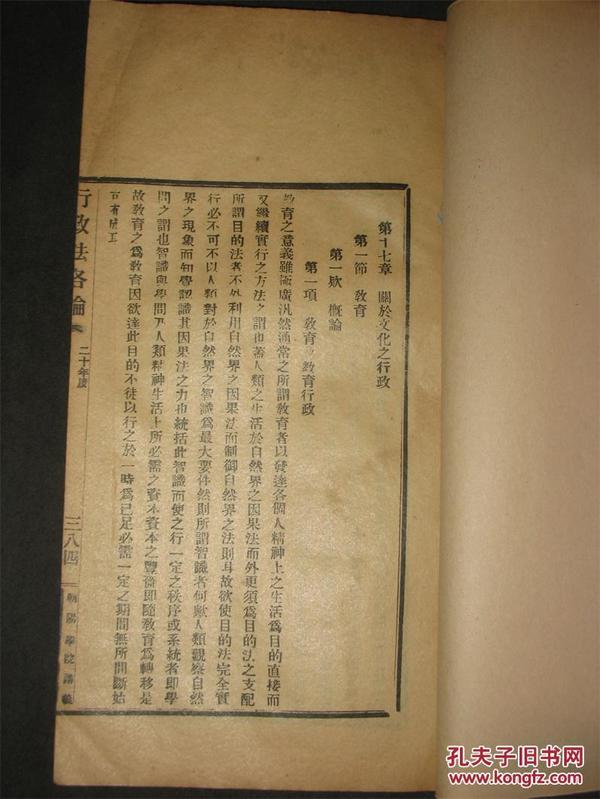 第十七章 關於文化之行政
第一節 教育
第一欵 概論
第一項 教育 教育行政
教育之意義雖極廣汎然通常之所謂教育者以發達各個人精神上之生活爲目的直接而
又繼續實行之方法之謂也蓋人類之生活於自然界之因果法而外更須爲目的法之支配
所謂目的法者不外利用自然界之因果法而制御自然界之法則耳故欲使目的法完全實
行必不可不以人類對於自然界之智識爲最大要件然則所謂智識者何歟人類觀察自然
界之現象而知覺認識其因果法之力也統括此智識而使之行一定之秩序或系統者即學
問之謂也智識與學問乃人類精神生活上所必需之資本資本之豐嗇即隨教育爲轉移是
故教育之爲教育因欲達此目的不徒以行之於一時爲已足必需一定之期間無所間斷始
可有成工
行政法各論
二十年度
三八四
朝陽學院講義
孔夫子旧书网
www.kongfz.com